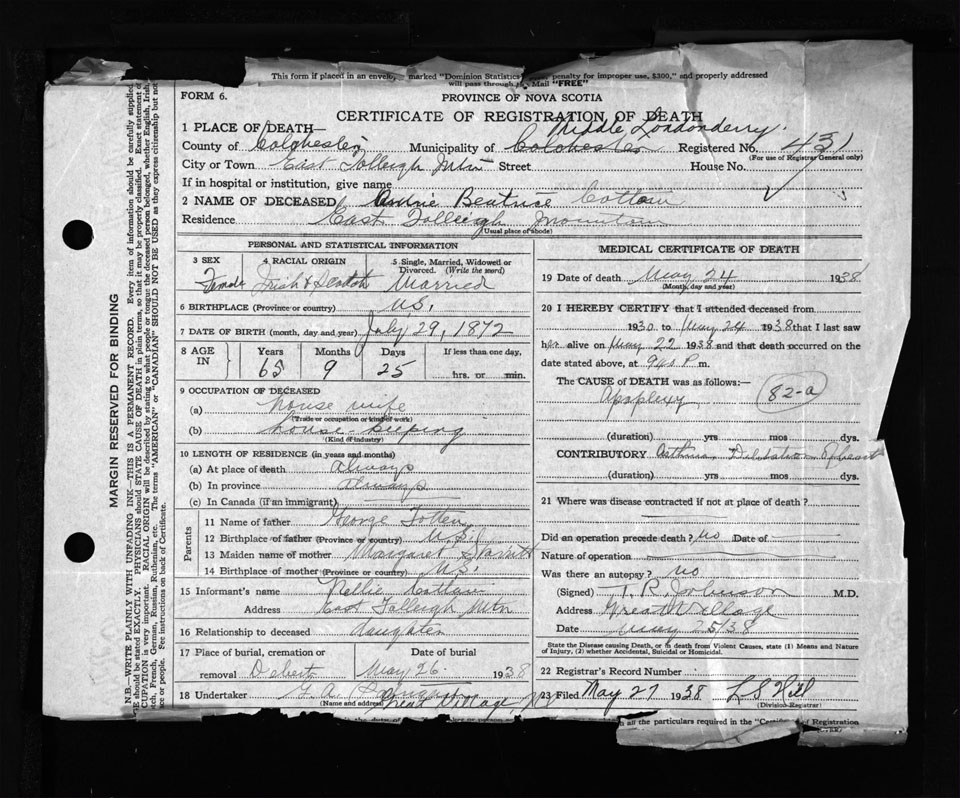 This form if placed in an envelope marked "Dominion Statistics penalty for improper use, $300," and properly addressed
will pass through the Mail "FREE"
FORM 6.
PROVINCE OF NOVA SCOTIA
CERTIFICATE OF REGISTRATION OF DEATH
1 PLACE OF DEATH—
Middle Londonderry.
County of Colchester Municipality of Colchester Registered No. 431
(For use of Registrar General only)
City or Town East Folleigh Mtn Street House No.
If in hospital or institution, give name
2 NAME OF DECEASED Annie Beatrice Cottam
Residence East Folleigh Mountain
(Usual place of abode)
PERSONAL AND STATISTICAL INFORMATION
3 SEX 4 RACIAL ORIGIN 5 Single, Married, Widowed or Divorced. (Write the word)
Female Irish & Scotch Married
6 BIRTHPLACE (Province or country) N.S.
7 DATE OF BIRTH (month, day and year) July 29, 1872
8 AGE IN Years Months Days If less than one day,
65 9 25 hrs. or min.
9 OCCUPATION OF DECEASED
(a) house wife
(Trade or occupation or kind of work)
(b) house-keeping
(Kind of industry)
10 LENGTH OF RESIDENCE (in years and months)
(a) At place of death always
(b) In province always
(c) In Canada (if an immigrant)
Parents
11 Name of father George Totten
12 Birthplace of father (Province or country) N.S.
13 Maiden name of mother Margaret
14 Birthplace of mother (Province or country) N.S.
15 Informant's name Nellie Cottam
Address East Folleigh Mtn
16 Relationship to deceased daughter
17 Place of burial, cremation or removal Date of burial
Debert May 26. 1938
18 Undertaker G. A.
(Name and address) Great Village, N.S.
MEDICAL CERTIFICATE OF DEATH
19 Date of death May 24 1938
(Month, day and year)
20 I HEREBY CERTIFY that I attended deceased from
1930 to May 24 1938 that I last saw
her alive on May 22 1938 and that death occurred on the
date stated above, at 9 P m.
The CAUSE of DEATH was as follows:—
Apoplexy 82-a
(duration) yrs mos dys.
CONTRIBUTORY Asthma Dilatation of heart
(duration) yrs. mos. dys.
21 Where was disease contracted if not at place of death?
Did an operation precede death? no Date of
Nature of operation
Was there an autopsy? no
(Signed) T. R. Johnson M.D.
Address Great Village
Date May 25/38
State the Disease causing Death, or in death from Violent Causes, state (1) Means and Nature
of Injury, (2) whether Accidental, Suicidal or Homicidal.
22 Registrar's Record Number
23 Filed May 27 1938 L S Hill
(Division Registrar)
all the particulars required in the "Certificate of Registration
MARGIN RESERVED FOR BINDING
N.B.—WRITE PLAINLY WITH UNFADING INK—THIS IS A PERMANENT RECORD. Every item of information should be carefully supplied.
should be stated EXACTLY. PHYSICIANS should STATE CAUSE OF DEATH in plain terms, so that it may be properly classified. Exact statement of
OCCUPATION is very important. RACIAL ORIGIN will be described by stating to what people or tongue the deceased person belonged, whether English, Irish,
French, German, Russian, Ruthenian, etc. The terms "AMERICAN" or "CANADIAN" SHOULD NOT BE USED as they express citizenship but not
race or people. See instructions on back of Certificate.